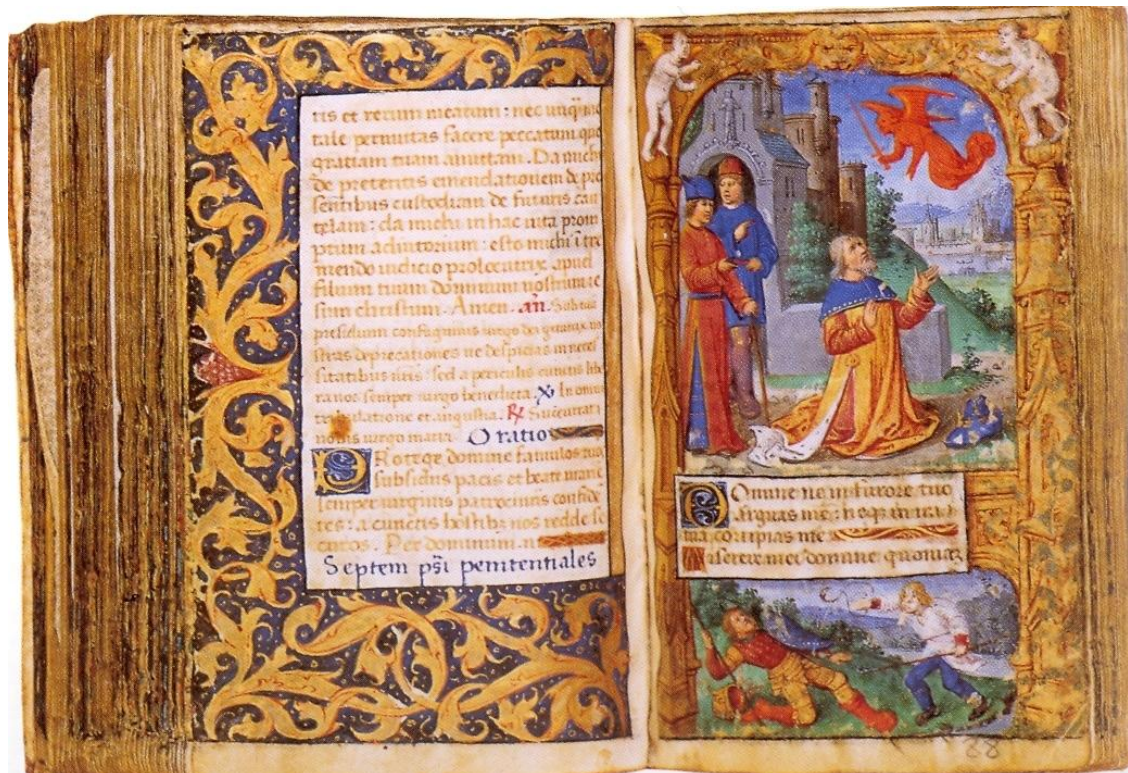 tis et rerum mearum : nec unq̄m
tale permittas facere peccatum quo
gratiam tuam amittam . Da michi
de preteritis emendationem de pre
sentibus custodiam de futuris cau
telam : da michi in hac vita prom
ptum adiutorium : esto michi ī tre
mendo iudicio prolocutrix apud
filium tuum dominum nostrum ie
sum christum . Amen . añ. Sub tuū
presidium confugimus virgo dei
stras deprecationes ne despicias in neces
sitatibus nr̄is : sed a periculis cunctis libe
ra nos semper virgo benedicta . ℣ In omni
tribulatione et angustia . ℟ Succurrat
nobis virgo maria Oratio
Protege domine famulos tuos
subsidiis pacis et beate marie
semper virginis patrociniis confidē
tes : a cunctis hostibz nos redde se
curos . Per dominum . n
Septem psī penitentiales
Domine ne in furore tuo
arguas me : neqz in ira
tua corripias me
Miserere mei domine quoniaz
88